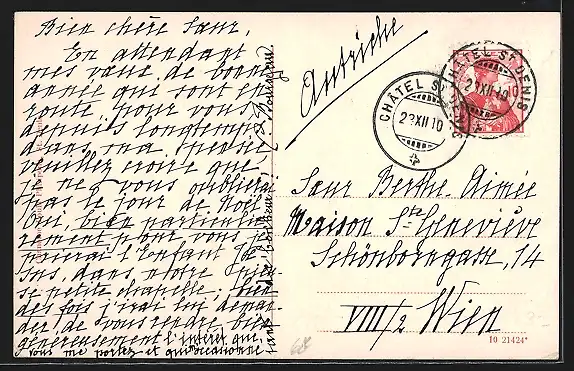 Bien chère Sœur,
En attendant
mes vœux de bonne
année qui sont en
route pour vous
depuis longtemps
dans ma pensée
veuillez croire que
je ne vous oublierai
pas le jour de Noël.
Oui, bien particuliè-
rement pour vous je
prierai l'Enfant Jé-
sus, dans notre
si petite chapelle; bien
des fois j'irai lui deman-
der, de vous rendre bien
généreusement l'intérêt que
vous me portez et
Autriche
CHÂTEL ST DENIS
23 XII 10
CHÂTEL ST DENIS
23 XII 10
Sœur Berthe-Aimée
Maison Ste Geneviève
Schönborngasse, 14
VIII/2 Wien
10 21424*
68